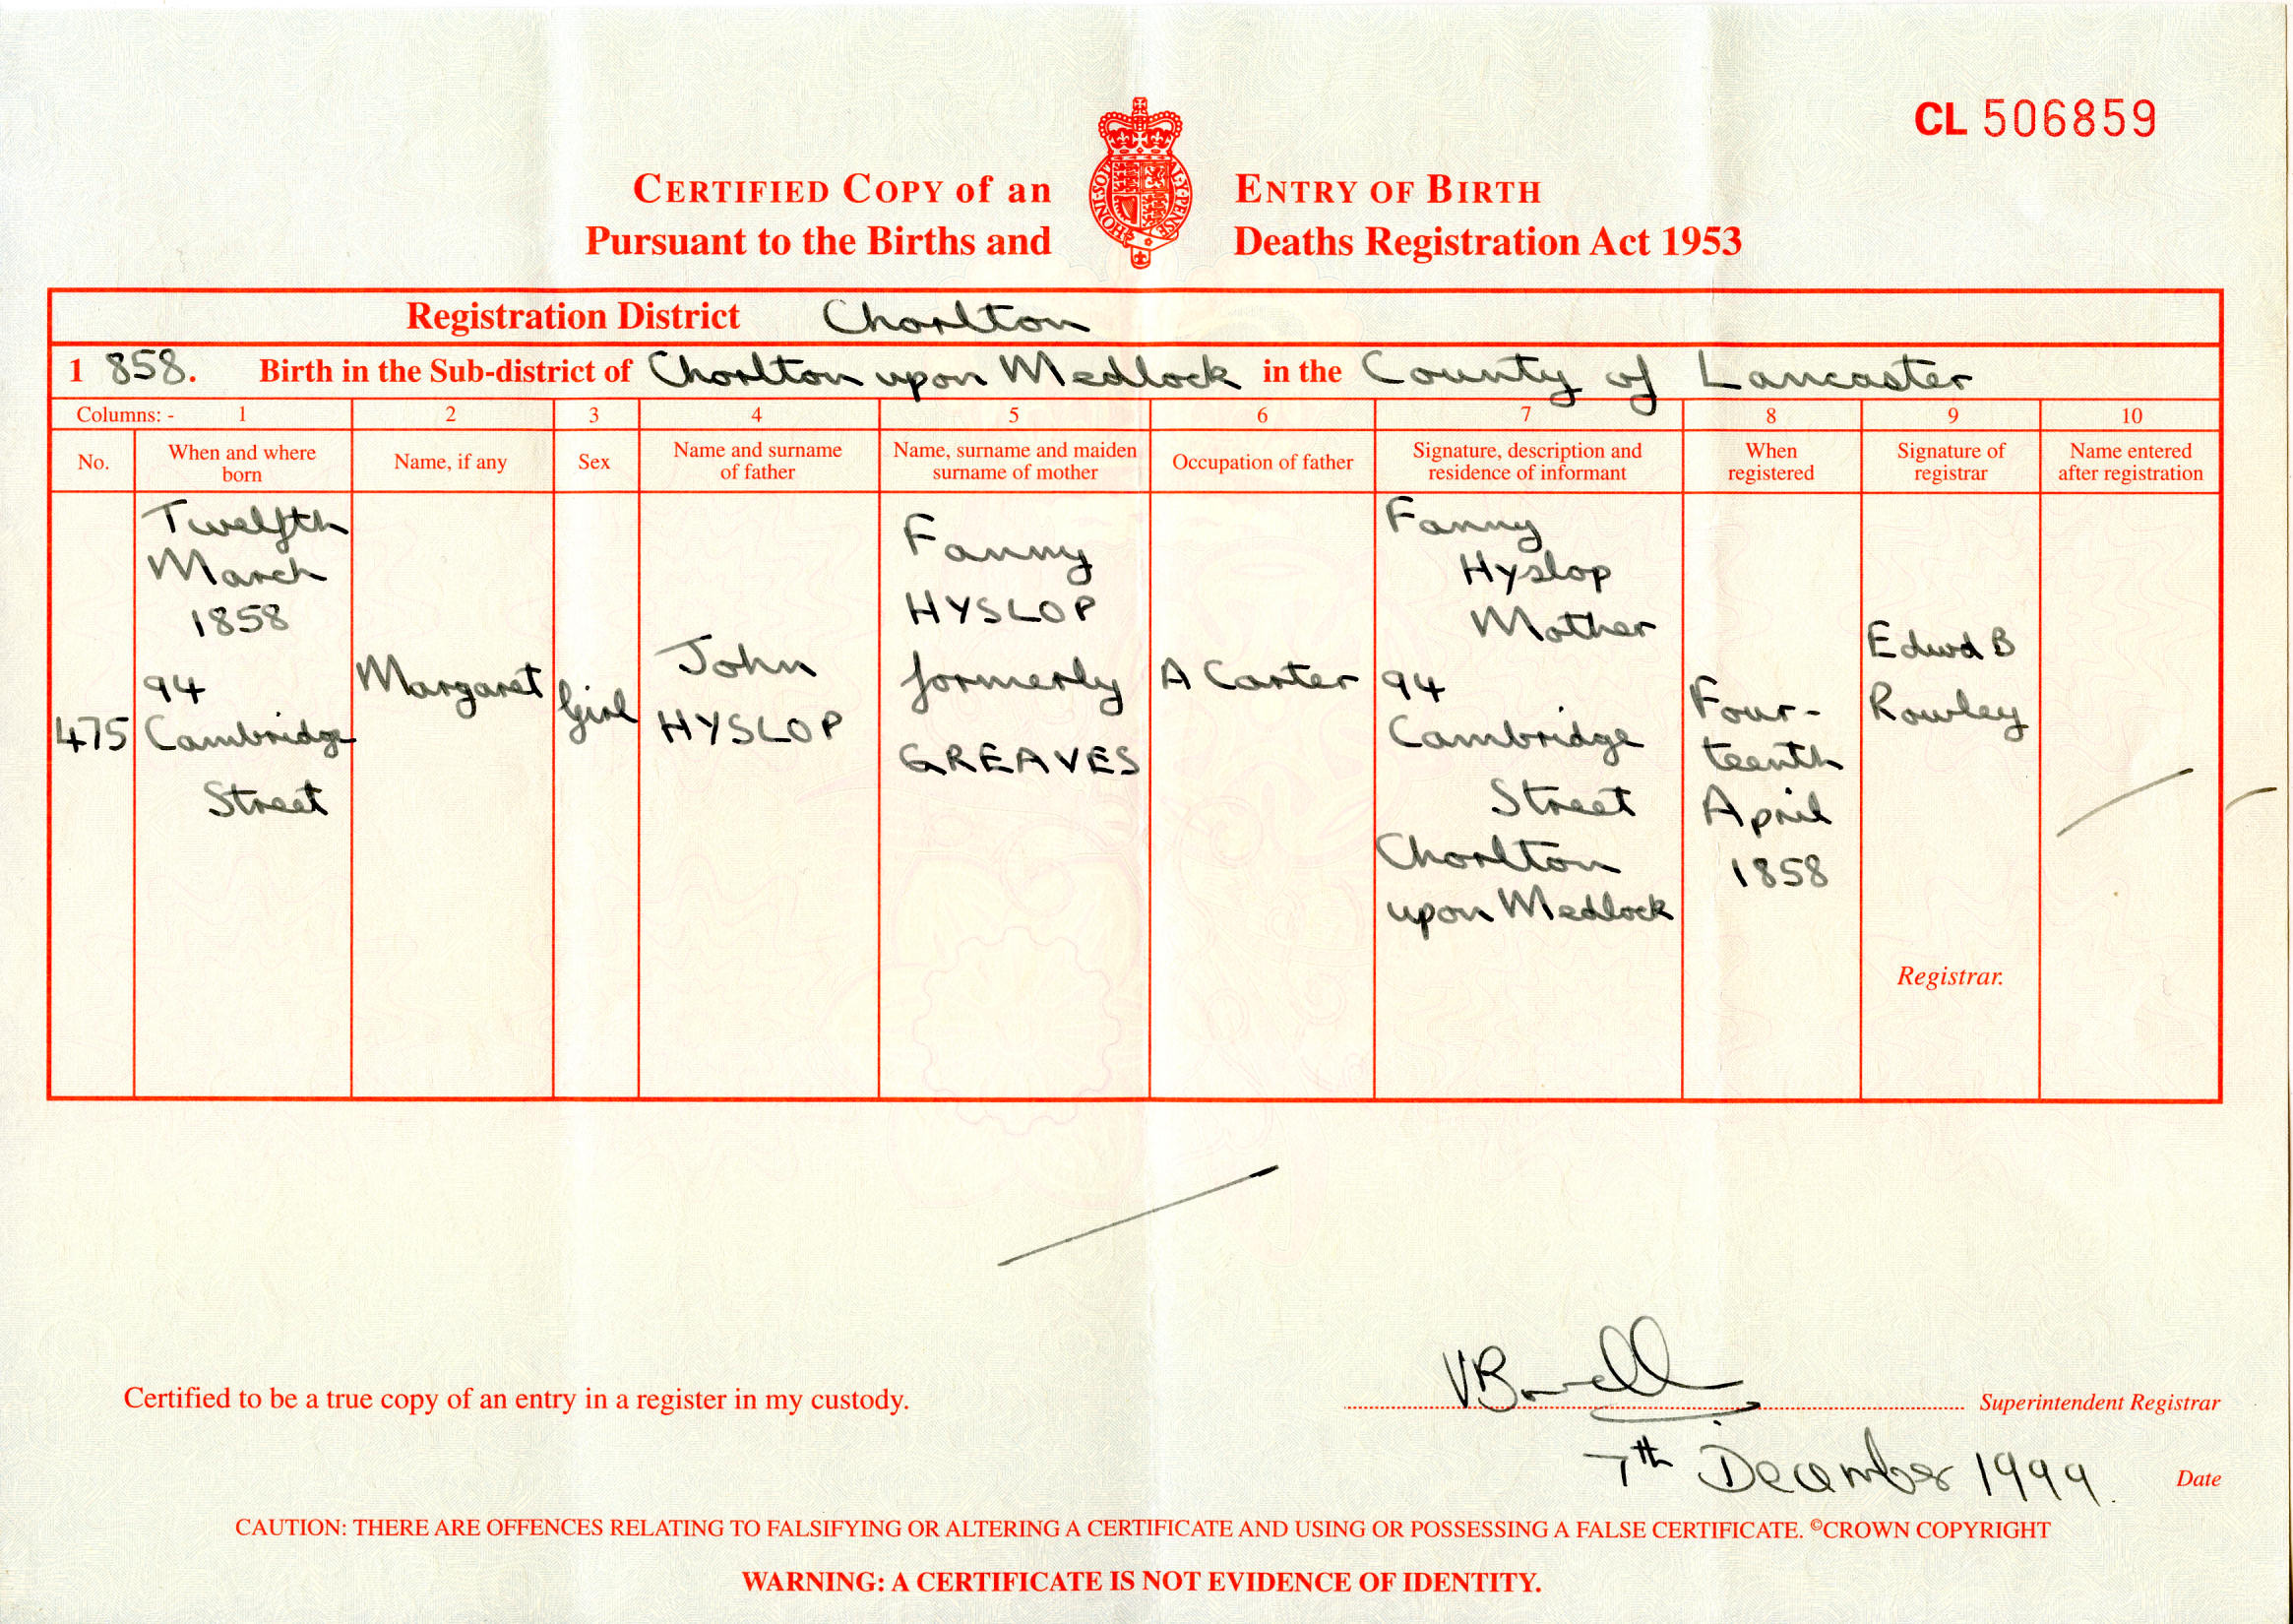 CL 506859
CERTIFIED COPY of an ENTRY OF BIRTH
Pursuant to the Births and Deaths Registration Act 1953
HONI·SOIT
AL·Y·PENSE
Registration District Chorlton
1 858. Birth in the Sub-district of Chorlton upon Medlock in the County of Lancaster
Columns: - 1 2 3 4 5 6 7 8 9 10
No.
When and where
born
Name, if any
Sex
Name and surname
of father
Name, surname and maiden
surname of mother
Occupation of father
Signature, description and
residence of informant
When
registered
Signature of
registrar
Name entered
after registration
475
Twelfth
March
1858
94
Cambridge
Street
Margaret
Girl
John
HYSLOP
Fanny
HYSLOP
formerly
GREAVES
A Carter
Fanny
Hyslop
Mother
94
Cambridge
Street
Chorlton
upon Medlock
Four-
teenth
April
1858
Edwd B
Rowley
Registrar.
Certified to be a true copy of an entry in a register in my custody.
Superintendent Registrar
7th December 1999. Date
CAUTION: THERE ARE OFFENCES RELATING TO FALSIFYING OR ALTERING A CERTIFICATE AND USING OR POSSESSING A FALSE CERTIFICATE. ©CROWN COPYRIGHT
WARNING: A CERTIFICATE IS NOT EVIDENCE OF IDENTITY.